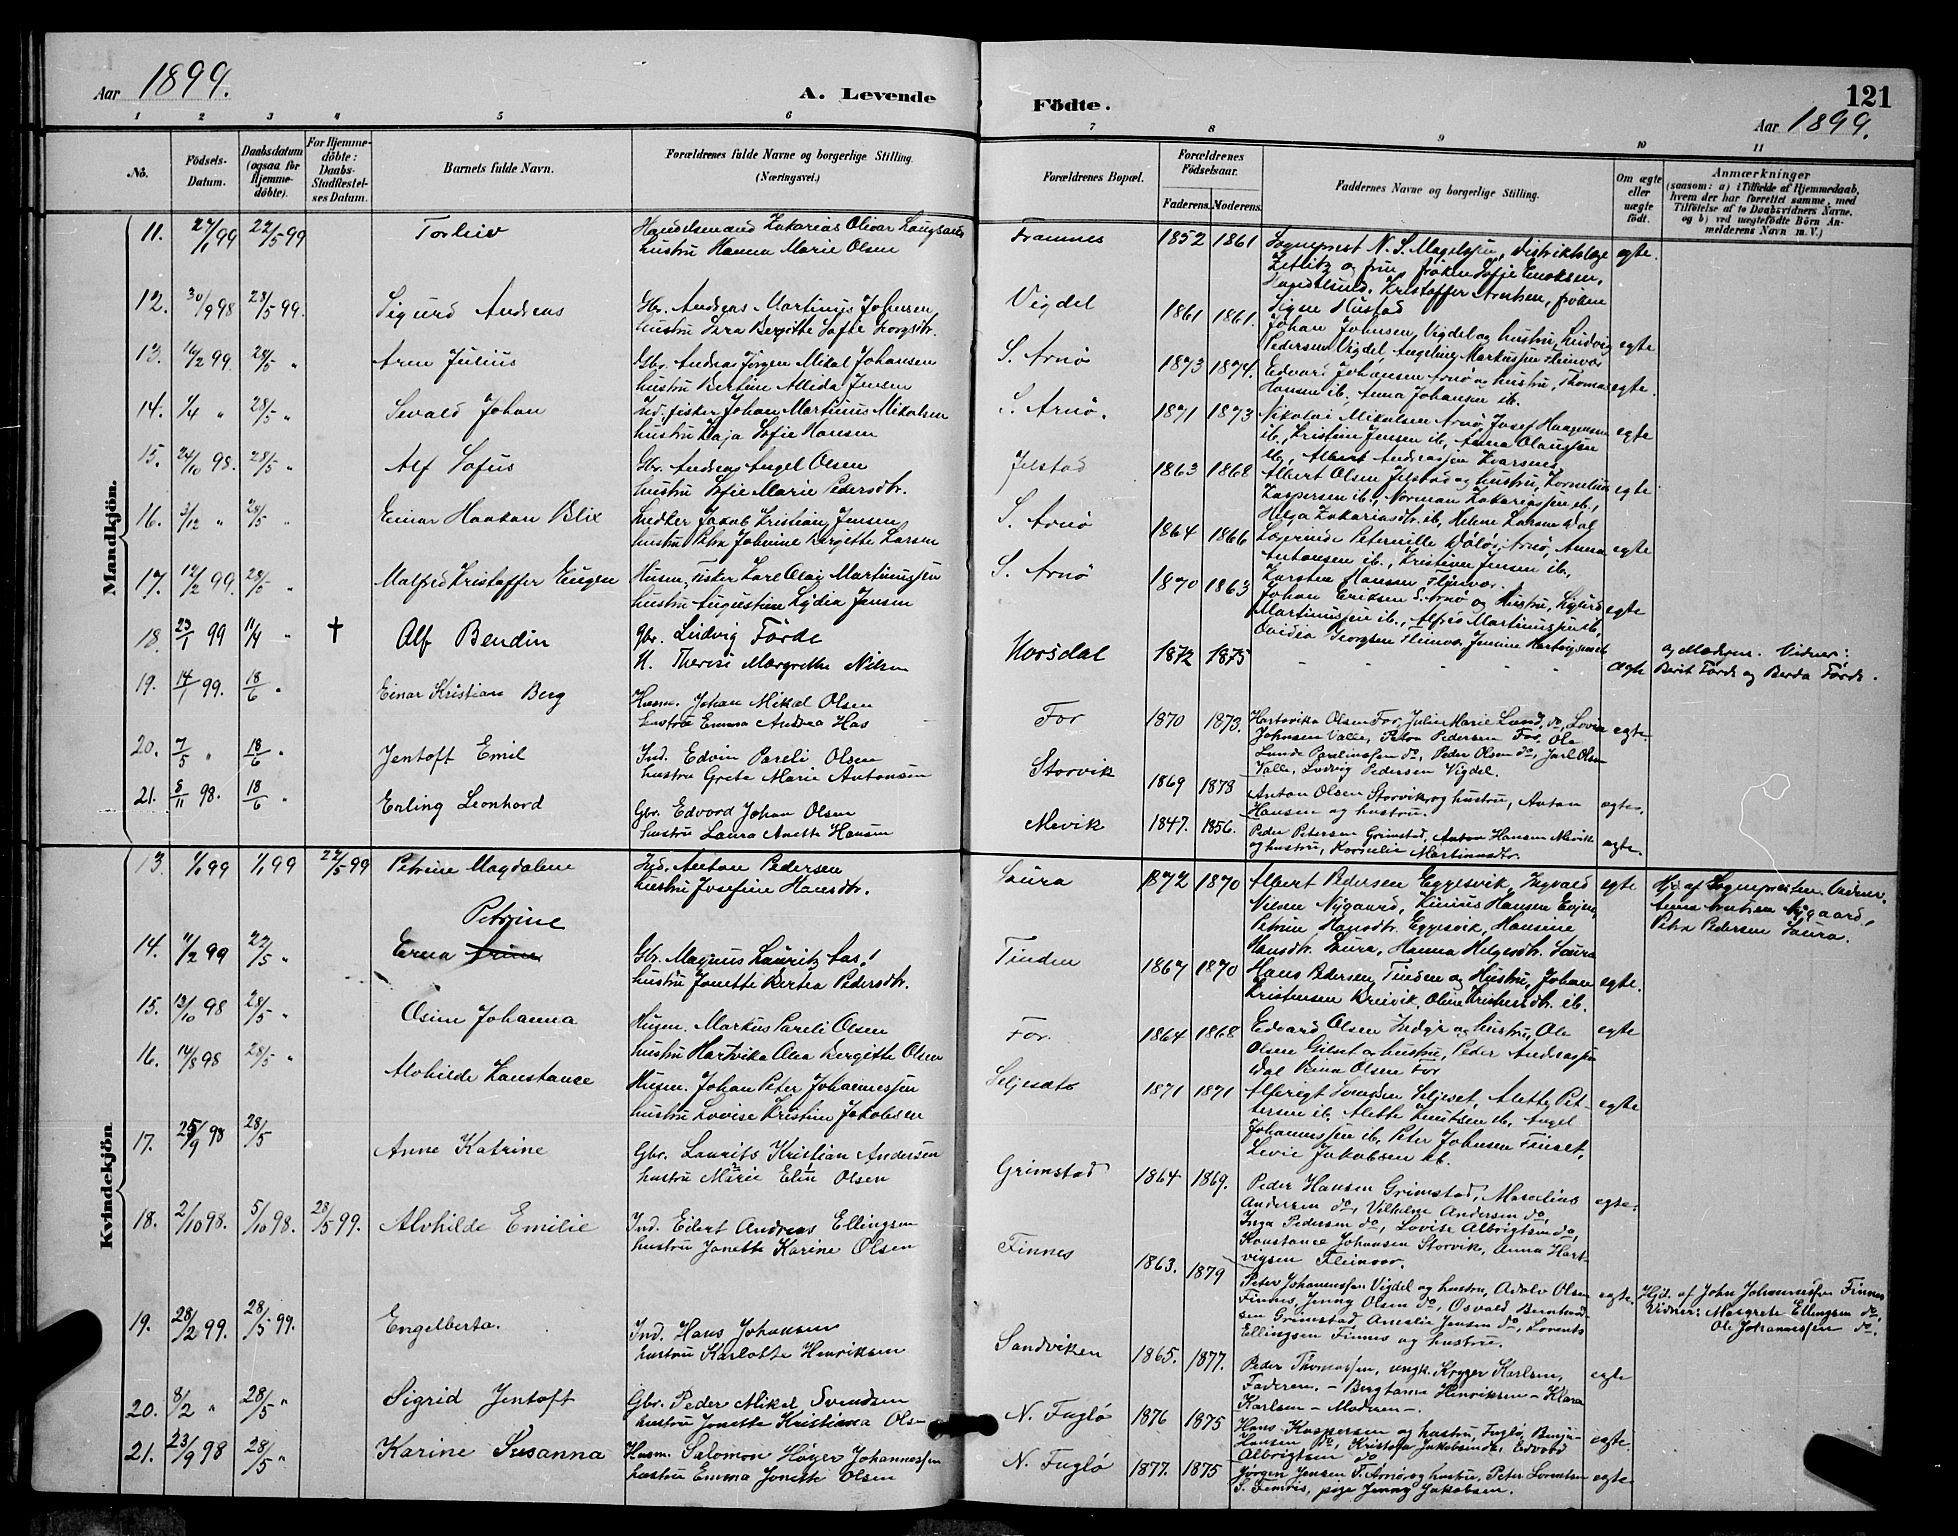 Aar 1899.
A. Levende
Födte.
121
Aar 1899.
1 2 3 4 5 6 7 8 9 10 11
No.
Födsels-Datum.
Daabsdatum (ogsaa for Hjemmedöbte).
For Hjemmedöbte: Daabs-Stadfæstelses Datum.
Barnets fulde Navn.
Forældrenes fulde Navne og borgerlige Stilling.
(Næringsvei.)
Forældrenes Bopæl.
Forældrenes Födselsaar.
Faderens. Moderens.
Faddernes Navne og borgerlige Stilling.
Om ægte eller uægte födt.
Anmærkninger
(saasom: a) i Tilfælde af Hjemmedaab, hvem der har forrettet samme, med Tilföielse af to Daabsvidners Navne, og b) ved uægtefödte Börn Anmelderens Navn m. V.)
Mandkjön.
11. 27/1 99 22/5 99 Torleiv
Handelsmand Zakarias Olivar Langsæt
hustru Hanna Marie Olsen
Framnes 1852 1861
Sogneprest N. S. Magelssen, Distriktslæge
Zetlitz og frue, frøken Sofie Enoksen,
Handelsmd. Kristoffer Arntsen, frøken
Signe Hustad
egte.
12. 30/9 98 28/5 99. Sigurd Andreas
Gbr. Andreas Martinus Johnsen
hustru Sara Bergitte Sofie
Vigdel 1861 1861.
Johan Johnsen, Vigdel og hustru, Ludvig
Pedersen Vigdel, Angeline Markussen Fleinvær
egte
13. 16/2 99. 28/5 " Arne Julius
Gbr. Andreas Jørgen Mikal Johansen
hustru Bertine Allida Jensen
S. Arnø 1873 1874.
Edvard Johansen Arnø og hustru, Thomas
Hansen ib. Anna Johansen ib.
egte.
14. 1/4 " 28/5 " Sevald Johan
Ind. fisker Johan Martinus Mikalsen
hustru Kaja Sofie Hansen
S. Arnø. 1871 1873
Nikolai Mikalsen Arnø, Josef Haagensen
ib., Kristine Jensen ib., Anna Olaussen
ib., Albert Andreassen
egte
15. 24/10 98. 28/5 " Alf Sofus
Gbr. Andreas Angel Olsen
hustru Sofie Marie Pedersdtr.
Jelstad 1863 1868
Albert Olsen Jelstad og hustru, Kornelius
Kaspersen ib., Norman Zakariassen ib.,
Helga Zakariasdtr. ib, Helene Larsen Dal
egte
16. 3/12 " 28/5 " Einar Haakan Blix
Snedker Jakob Kristian Jensen
hustru Petra Johnine Bergitte Larsen
S. Arnø 1864 1866
Lærerinde Peternille Arnø, Anna
Antonsen ib., Kristine Jensen ib.,
Karsten Hansen Fleinvær.
egte
17. 12/2 99. 28/5 " Malfred Kristoffer Eugen
Husm, Fisker Karl Olaj Martinussen
hustru Augustine Lydia Jensen
S. Arnø 1870 1863
Johan Eriksen S. Arnø og Hustru, Sigurd
Martinussen ib., Alfred Martinussen ib,
Ovidia Georgsen Fleinvær, Jensine
egte
18. 23/1 99 11/4 " † Alf Bendin
Gbr. Ludvig Førde
H. Therese Margrethe Nilsen
Horsdal 1872 1875
" " " " "
Ægte
og Moderen. Vidner:
Berit Førde og Berda Førde.
19. 14/1 99. 18/6 " Einar Kristian Berg
Husm. Johan Mikal Olsen
hustru Emma Andrea Has
For 1870 1873.
Hartvika Olsen For, Julie Marie Lund, do, Lovise
Johnsen Valle, Peter Pedersen For, Ole
egte
20. 7/5 " 18/6 " Jentoft Emil
Ind. Edvin Pareli Olsen
hustru Grete Marie Antonsen
Storvik 1869 1878
Lunde Parelinssen do, Peder Olsen do, Jarl Olsen
Valle, Ludvig Pedersen Vigdel.
Anton Olsen Storvik og hustru, Anton
Hansen og hustru.
egte.
21. 8/11 98. 18/6 " Erling Leonhard
Gbr. Edvard Johan Olsen
hustru Laura Anette Hansen
Mevik 1847. 1856.
Peder Petersen Grimstad, Anton Hansen Mevik
og hustru, Kornelie Martinusdtr.
egte.
Kvindekjön
13. 1/1 99 1/1 99 22/5 99 Petrine Magdalene
Ind. Anton Pedersen
hustru Josefine Hansdtr.
Saura 1872 1870
Albert Pedersen Eggesvik, Ingvald
Nilsen Nygaard, Hansen Evjen,
Petrine Hansdtr. Eggesvik, Hansine
Hansdtr. Saura, Hanna Helgesdtr. Saura
egte
Hj. af Sognepresten. Vidner:
Anna Arntsen Nygaard,
Petra Pedersen Saura.
Petrine
14. 11/2 99 22/5 " Erna
Gbr. Magnus Lauritz Las.
hustru Jonette Bertea Pedersdtr.
Tinden 1867 1870
Hans Pedersen Tinden og Hustru, Johan
Kristensen Breivik, Oline Kristensdtr. ib.
egte.
15. 13/10 98 28/5 " Osine Johanna
Husm. Markus Pareli Olsen
hustru Hartvika Alea Bergitte Olsen
For. 1864 1868
Edvard Olsen Indyr og hustru, Ole
Olsen Gilset og hustru, Peder Andreassen
Dal Olsen For
egte
16. 14/8 98 28/5 " Alvhilde Konstance
Husm. Johan Peter Johannessen
hustru Lovise Kristine Jakobsen
Seljesæt 1871 1871
Albrigt Seljeset, Alette Pet-
tersen ib. Alette Knutsen ib, Angel
Johannessen ib. Peter Johnsen Finset,
Levie Jakobsen ib.
egte
17. 25/9 98 28/5 Anne Katrine
Gbr. Laurits Kristian Andersen
hustru Marie Elin Olsen
Grimstad 1864 1869.
Peder Hansen Grimstad, Marselius
Andersen do, Vilhelm Andersen do,
Inga Pedersen do, Lovise Albrigtsen do,
Konstance Johansen Storvik, Anna Hart-
vigsen Fleinvær.
egte.
18. 2/10 98. 5/10 98. 28/5 99. Alvhilde Emilie
Ind. Eilert Andreas Ellingsen
hustru Jonette Karine Olsen
Finnes 1863. 1879
Peter Johannessen Vigdel og hustru, Adolv Olsen
Finnes, Jenny Olsen do, Osvald Berntsen
sen Grimstad Amalie Jensen do, Lorents
Ellingsen Finnes og hustru.
egte.
Hjd. af John Johannessen Finnes
Vidner: Margrete Ellingsen do,
Ole Johannessen do.
19. 28/2 99. 28/5 99. Engelberta.
Ind. Hans Johansen
hustru Karlotte Henriksen
Sandviken 1865. 1877.
Peder Thomassen, ungk. Krøger Karlsen,
Faderen, – Bergtame Henriksen – Klara
Karlsen – Moderen –.
egte
20. 8/2 " 28/5 " Sigrid Jentoft
Gbr. Peder Mikal Svendsen
hustru Jonette Kristianna Olsen
N. Fuglø 1876 1875
Hans Kaspersen og hustru, Fuglø, Benja-
Hansen do, Kristofa Jakobsen do, Edvard
Albrigtsen do
egte.
21. 23/9 98 28/5 " Karine Susanna
Husm. Salomon Høyer Johannessen
hustru Emma Jonette Olsen
N. Fuglø 1877. 1875
Jørgen Jensen S. Arnø og hustru, Peter Lorentsen
S. Femris, pige Jenny Jakobsen.
egte